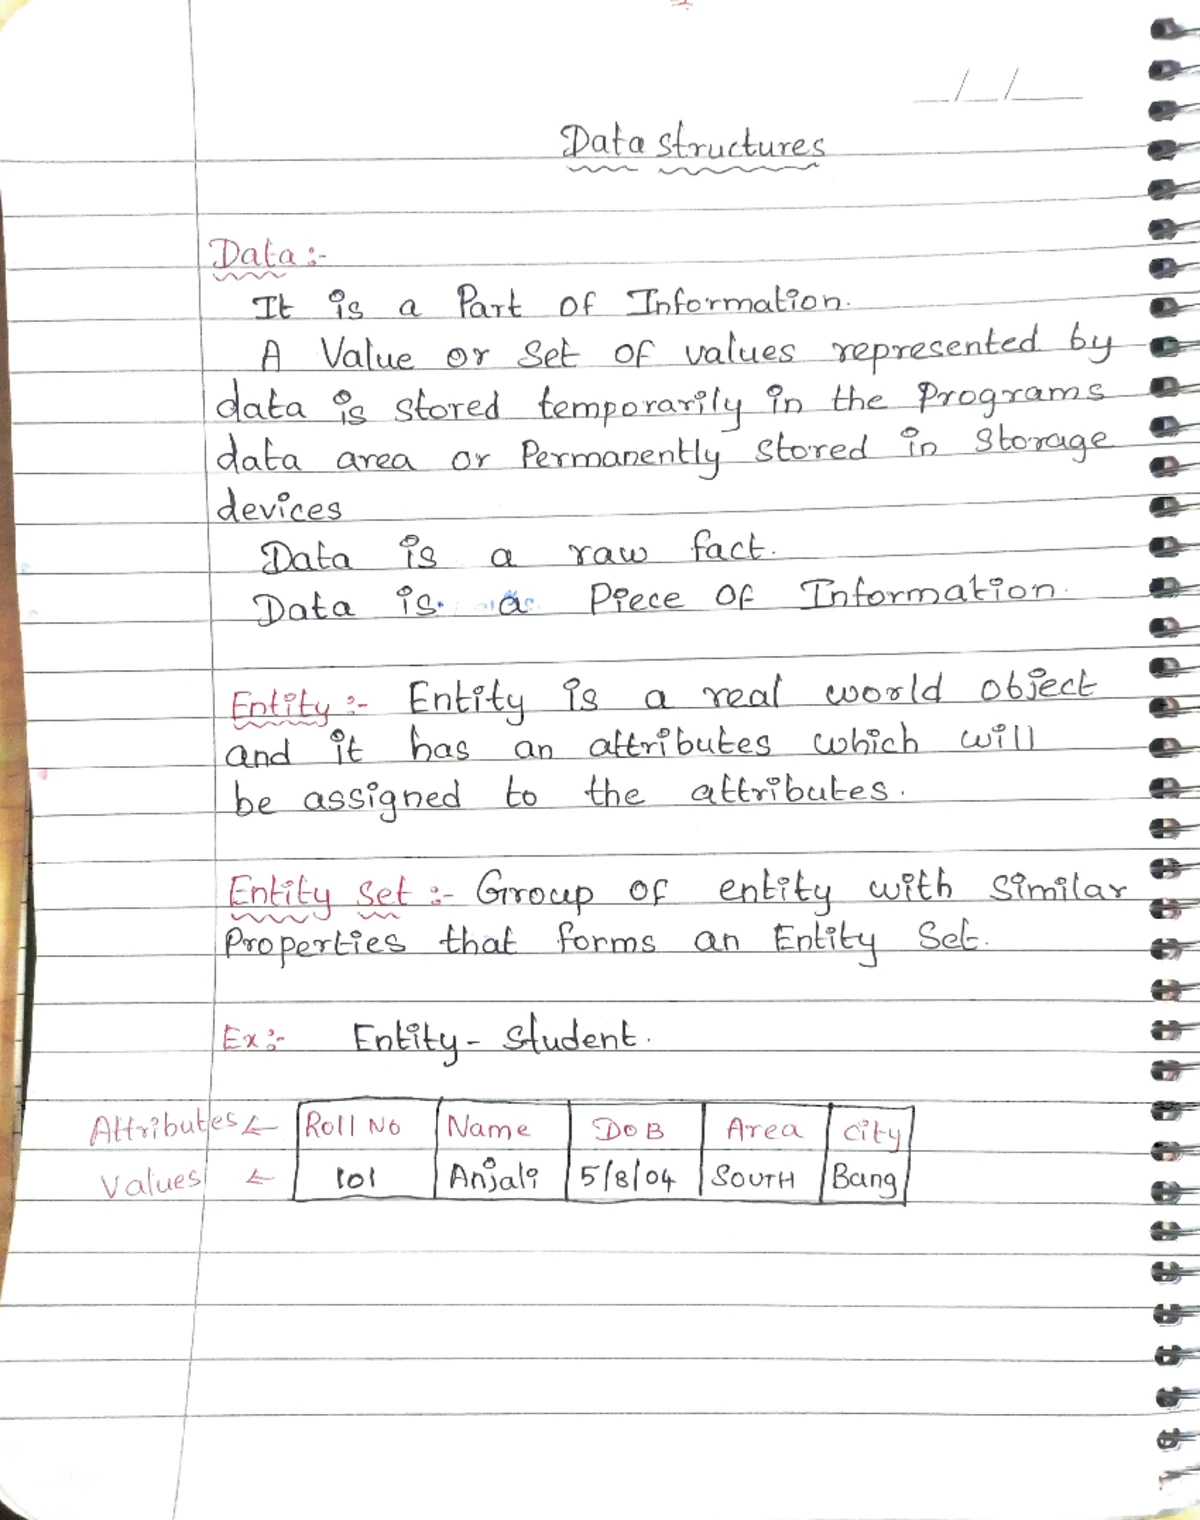 __/__/____
Data structures
Data :-
It is a Part of Information.
A Value or Set of values represented by
data is stored temporarily in the Programs
data area or Permanently stored in Storage
devices
Data is a raw fact.
Data is a Piece of Information.
Entity :- Entity is a real world object
and it has an attributes which will
be assigned to the attributes.
Entity Set :- Group of entity with Similar
Properties that forms an Entity Set.
Ex :- Entity - Student.
Attributes ← Roll No Name DOB Area City
Values ← 101 Anjali 5/8/04 SOUTH Bang